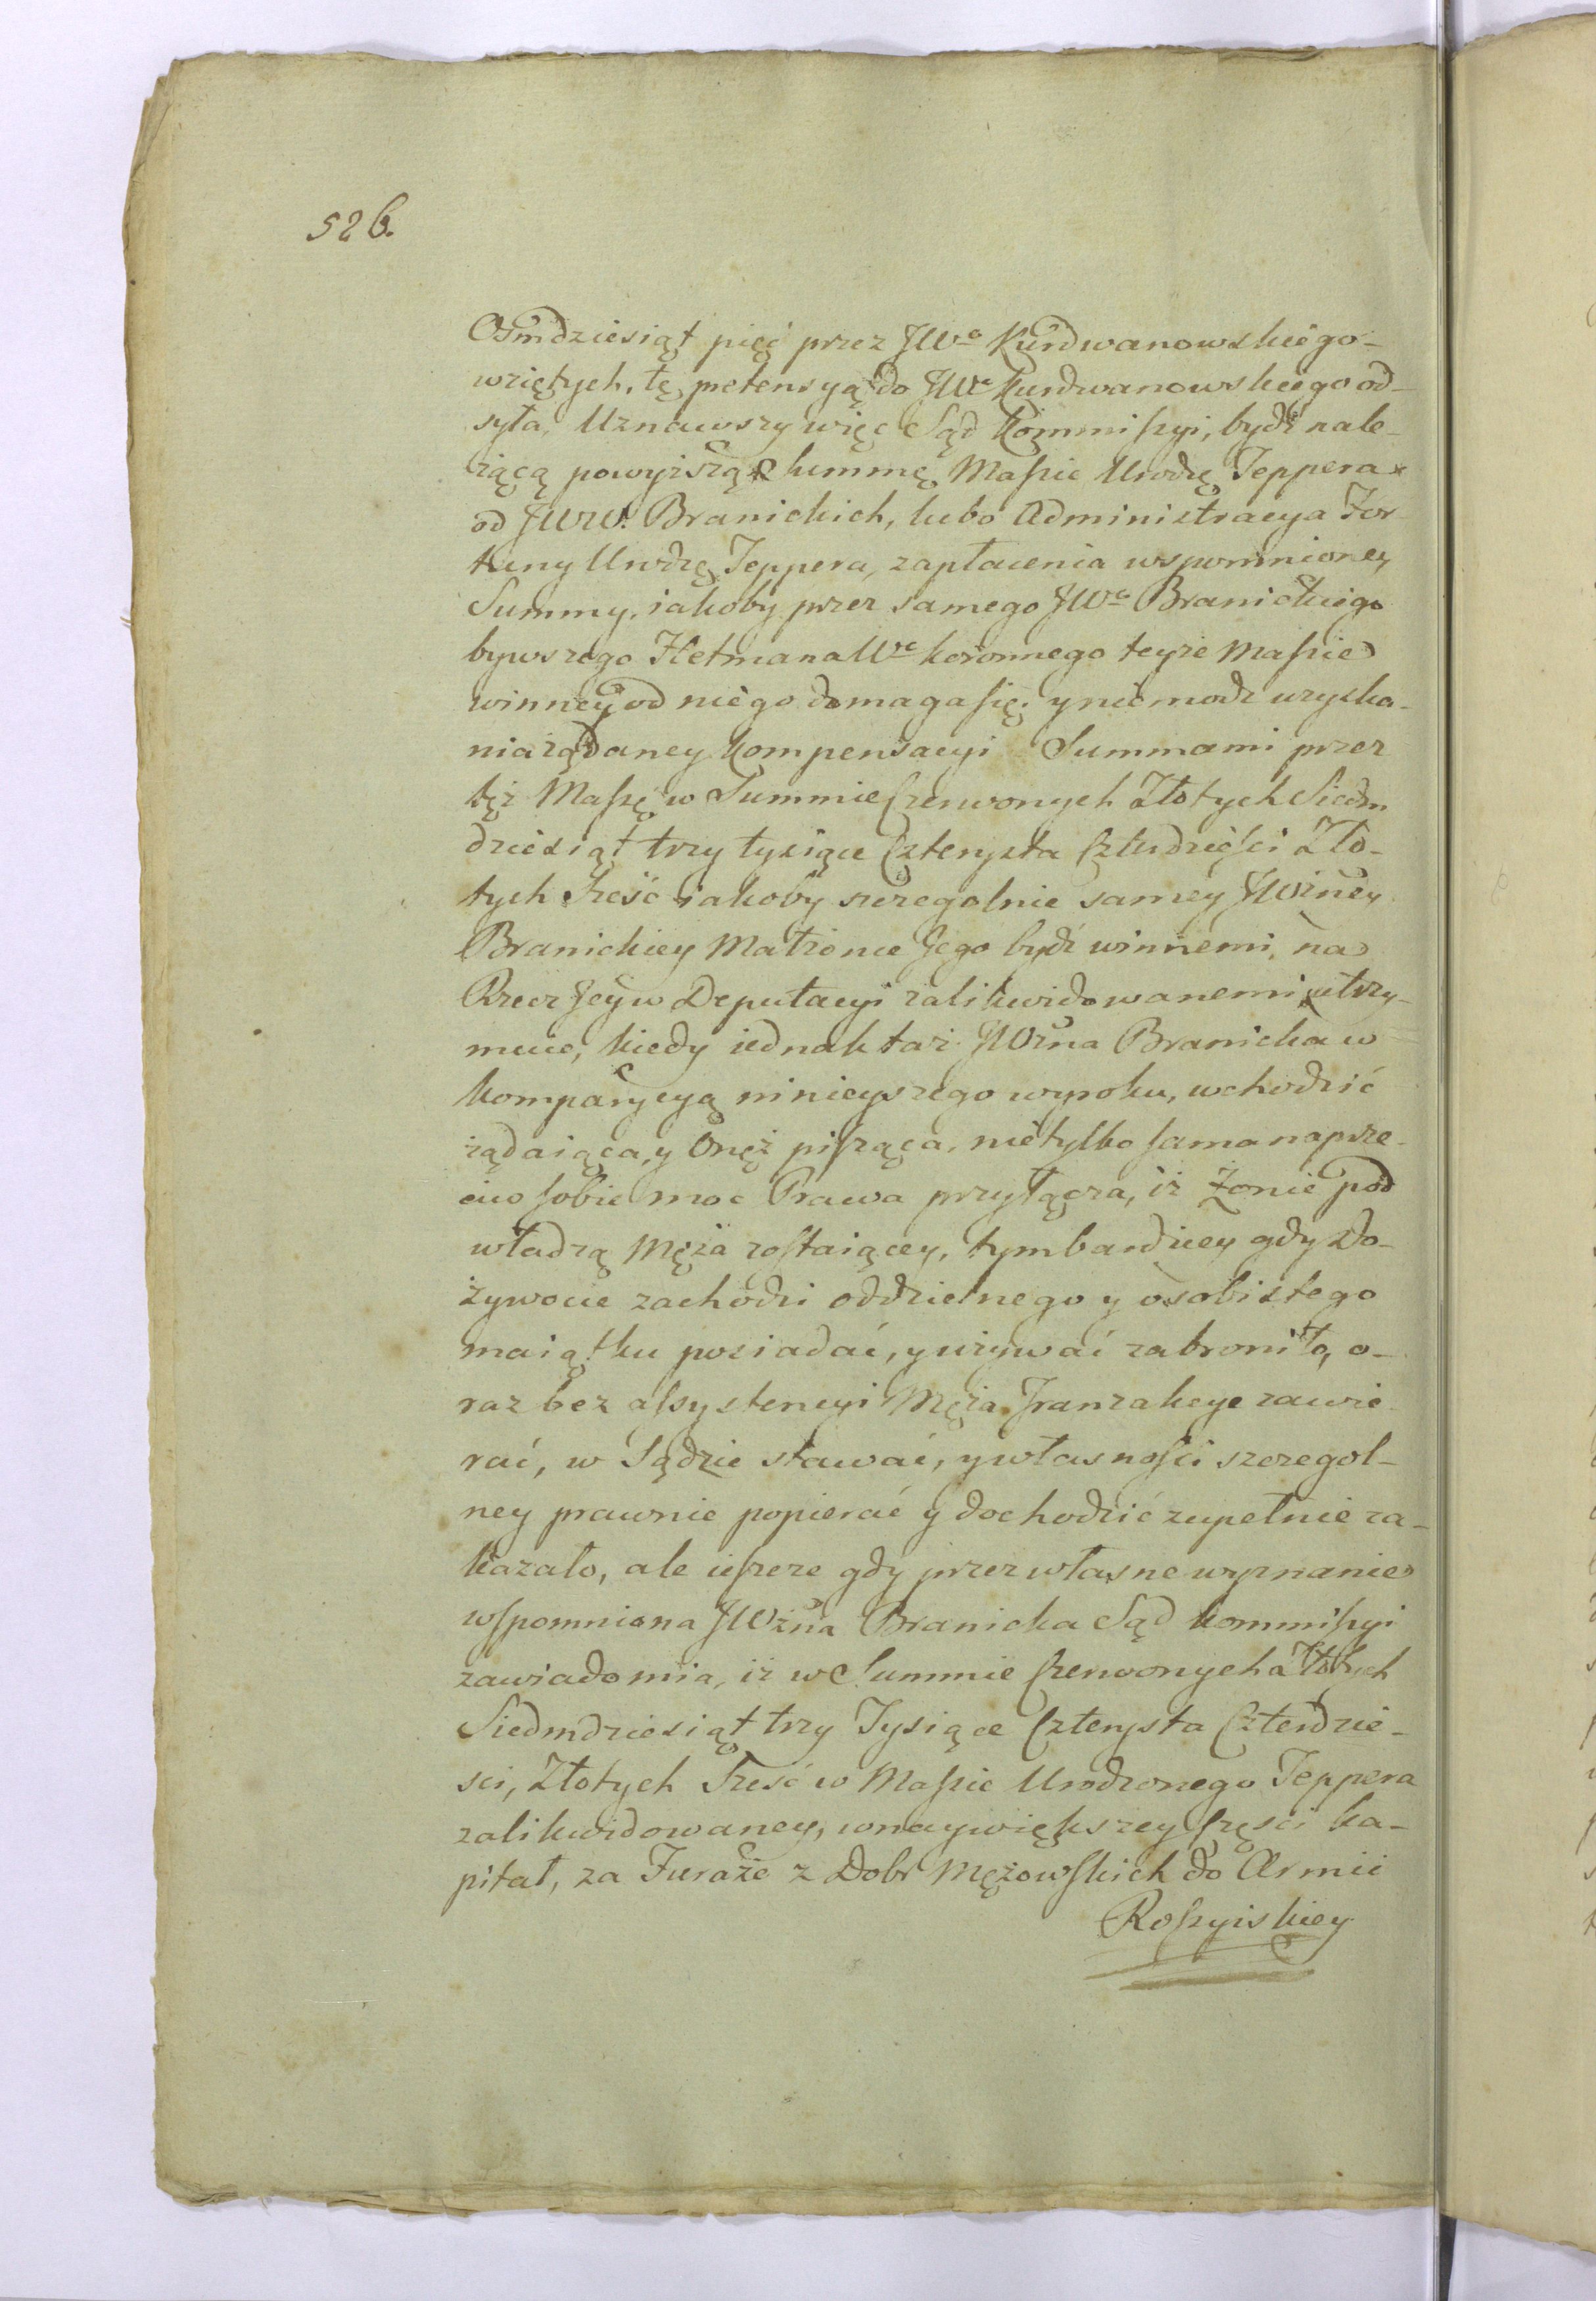 526.
Ośmdziesiąt pięć przez JWo Kurdwanowskiego
wziętych, tę pretensyą do JWo Kurdwanowskiego od-
syła, Uznawszy więc Sąd Kommissyi, bydź nale-
żącą powyższą Summę Massie Urodzo Teppera
od JWW. Branickich, lubo Administracya For-
tuny Urodzo Teppera, zapłacenia wspomnioney
Summy, iakoby przez samego JWo Branickiego
bywszego Hetmana Wo koronnego teyże Massie
winney od niego domaga się, y niemożność uzyska-
nia żądaney kompensacyi Summami przez
tęż Massę w Summie Czerwonych Złotych Siedm
dziesiąt trzy tysiące Czterysta Czterdzieści Zło-
tych Sześć iakoby szczegolnie samey JWżney
Branickiey Małżonce Jego bydź winnemi, na
Rzecz Jey w Deputacyi zalikwidowanemi utrzy-
muie, kiedy iednak taż JWżna Branicka w
komparycyą ninieyszego wyroku, wchodzić
żądaiąca, y Onęż pisząca, nietylko sama naprze-
ciw sobie moc Prawa przyłącza, iż Żonie pod
władzą Męża zostaiącey, tymbardziey gdy Do-
żywocie zachodzi oddzielnego y osobistego
maiątku posiadać, y używać zabroniło, o-
raz bez assystencyi Męża Tranzakcye zawie-
rać, w Sądzie stawać, y własności szczegol-
ney prawnie popierać y dochodzić zupełnie za-
kazało, ale ieszcze gdy przez własne wyznanie
wspomniona JWżna Branicka Sąd kommissyi
zawiadomia, iż w Summie Czerwonych Złotych
Siedmdziesiąt trzy Tysiące Czterysta Czterdzie-
ści, Złotych Sześć w Massie Urodzonego Teppera
zalikwidowaney, w naywiększey Części ka-
pitał, za Furaże z Dobr Mężowskich do Armii
Rossyiskiey